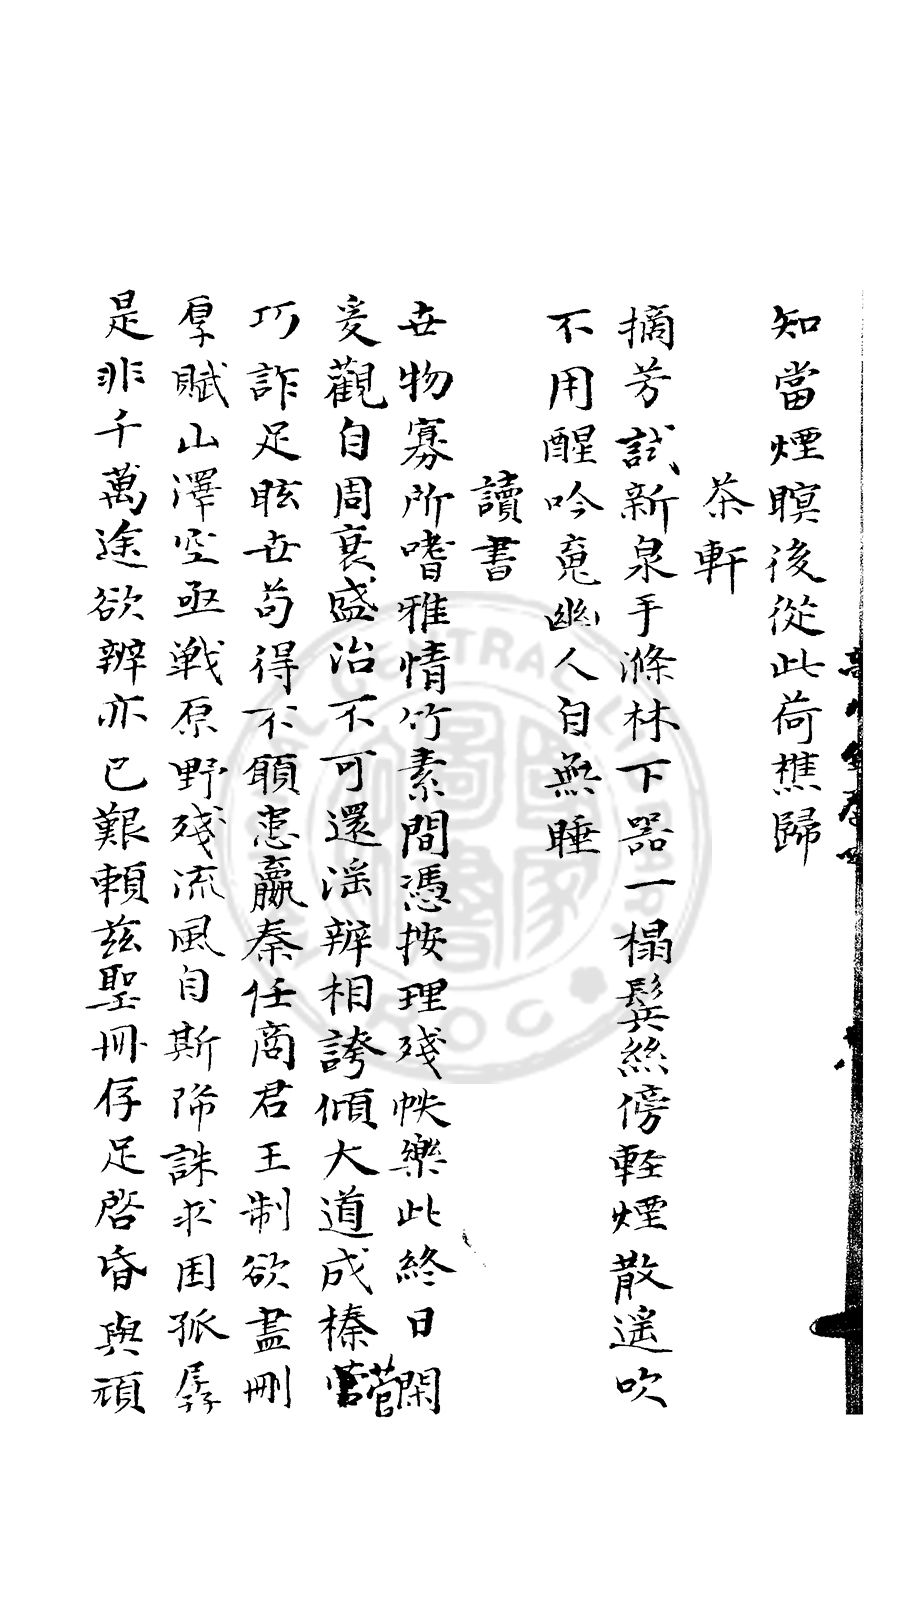 知當煙暝後從此荷樵歸
茶軒
摘芳試新泉手滌林下器一榻鬂絲傍輕煙散遥吹
不用醒吟䰟幽人自無睡
讀書
世物寡所嗜雅情竹素間憑按理殘帙樂此終日閑
爰觀自周衰盛治不可還滛辨相誇傾大道成榛菅
巧詐足眩世茍得不顧患嬴秦任商君王制欲盡刪
厚賦山澤空亟戰原野殘流風自斯降誅求困孤孱
是非千萬途欲辨亦已艱賴兹聖冊存足啓昏與頑
CENTRAL LIBRARY
ROC